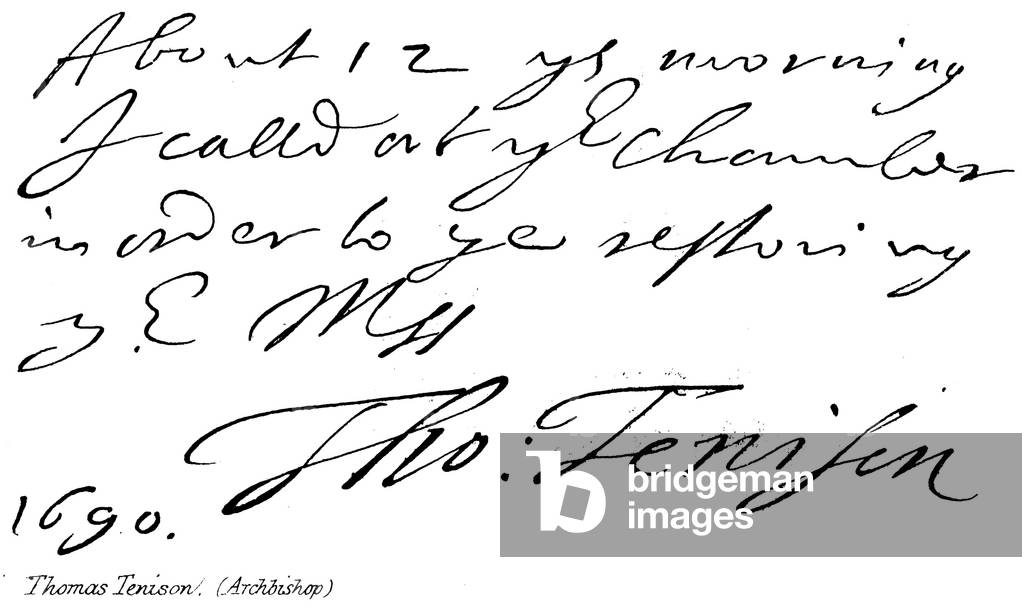 About 12 ys morning
I calld at yr Chamber
in order to ye restoring
yr Mss
Tho: Tenison
1690.
Thomas Tenison. (Archbishop)
bridgeman
images